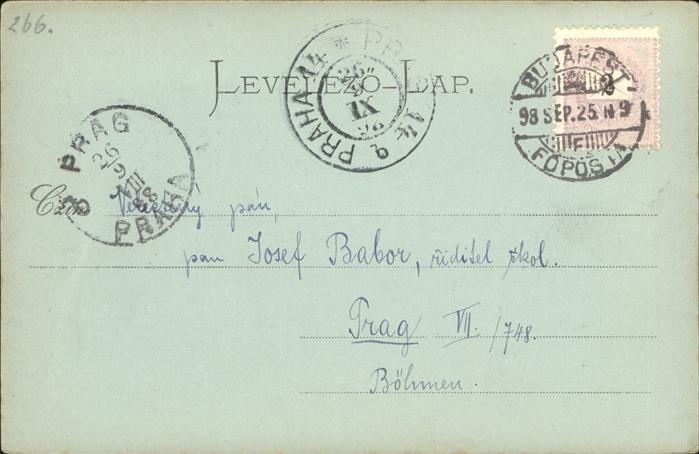 266.
LEVELEZŐ-LAP.
BUDAPEST
98 SEP. 25. N 9
FŐPOSTA
2
PRAHA 14 * PRAG 14
26
9
IX
98
PRAG
26
9
VIII
98
PRAHA
Czím
Velectěný pán,
pan Josef Babor, řiditel škol.
Prag VII. /748.
Böhmen.